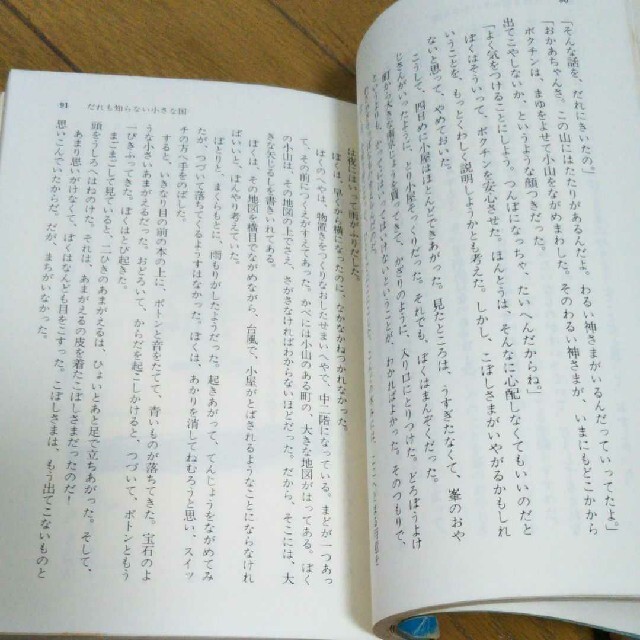 「そんな話を、だれにきいたの。」
「おかあちゃんさ。この山にはたたりがあるんだよ。わるい神さまがいるんだっていってたよ。」
ボクチンは、まゆをよせて小山をながめまわした。そのわるい神さまが、いまにもどこかから
出てこやしないか、というような顔つきだった。
「よく気をつけることにしよう。つんぼになっちゃ、たいへんだからね。」
ぼくはそういって、ボクチンを安心させた。ほんとうは、そんなに心配しなくてもいいのだと
いうことを、もっとくわしく説明しようかとも考えた。しかし、こぼしさまがいやがるかもしれ
ないと思って、やめておいた。
こうして、四日めに小屋はほとんどできあがった。見たところは、うすぎたなくて、峯のおや
だれも知らない小さな国
ぼくは、早くから横になったが、なかなかねつかれなかった。
ぼくのへやは、物置をそっくりなおしたせまいへやで、中二階になっている。まどが一つあっ
て、その明につくえがすえてあった。かべには小山のある町の、大きな地図がはってある。ぼく
の小山は、その地図の上でさえ、さがさなければわからないほどだった。だから、そこには、大
きな矢じるしを書きいれてある。
ぼくは、その地図を横目でながめながら、台風で、小屋がとばされるようなことにならなけれ
ばいいと、ぼんやり考えていた。
ぽとりと、まくらもとに、雨もりがしたようだった。起きあがって、てんじょうをながめてみ
たが、つづいて落ちてくるようすはなかった。ぼくは、あかりを消してねむろうと思い、スイッ
チの方へ手をのばした。
すると、いきなり目の前の本の上に、ポトンと音をたてて、青いものが落ちてきた。宝石のよ
うな小さいあまがえるだった。おどろいて、からだを起こしかけると、つづいて、ポトンともう
一ぴきふってきた。ぼくはとび起きた。
まごまごして見ていると、二ひきのあまがえるは、ひょいとあと足で立ちあがった。そして、
頭をうしろへはねのけた。それは、あまがえるの皮を着たこぼしさまだったのだ！
あまり思いがけなくて、ぼくはなんども目をこすった。こぼしさまは、もう出てこないものと
思いこんでいたからだ。だが、まちがいなかった。